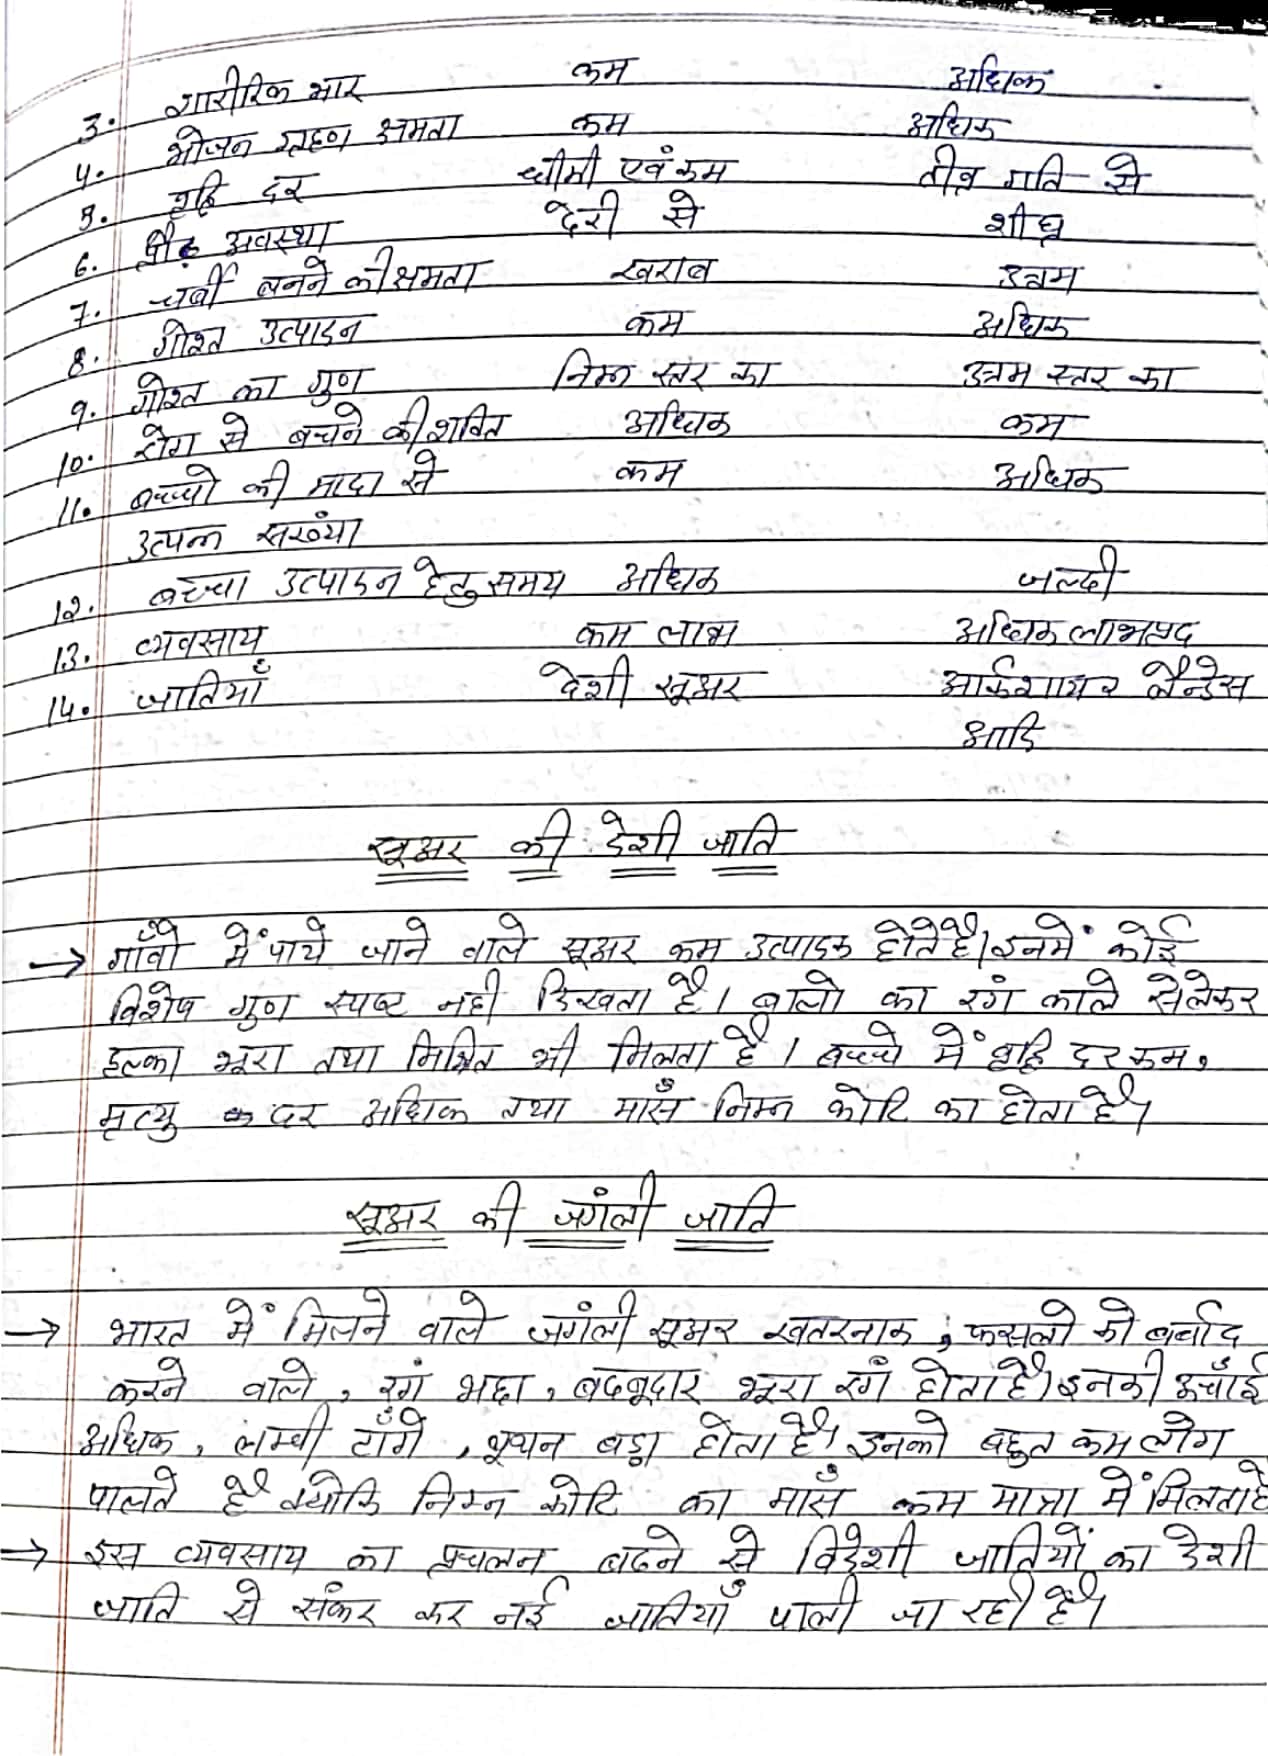 3. शारीरिक भार कम अधिक
4. भोजन ग्रहण क्षमता कम अधिक
5. वृद्धि दर धीमी एवं कम तीव्र गति से
6. प्रौढ़ अवस्था देरी से शीघ्र
7. चर्बी बनने की क्षमता खराब उत्तम
8. गोश्त उत्पादन कम अधिक
9. गोश्त का गुण निम्न स्तर का उत्तम स्तर का
10. रोग से बचने की शक्ति अधिक कम
11. बच्चो की मादा से कम अधिक
उत्पन्न सख्ंया
12. बच्चा उत्पादन हेतु समय अधिक जल्दी
13. व्यवसाय कम लाभ अधिक लाभप्रद
14. जातियाँ देशी सूअर आर्कशायर लैन्डेस
आदि
सूअर की देशी जाति
→ गाँवो में पाये जाने वाले सूअर कम उत्पादक होते है। इनमें कोई
विशेष गुण स्पष्ट नही दिखता है। बालो का रंग काले से लेकर
हल्का भूरा तथा मिश्रित भी मिलता है। बच्चे में वृद्धि दर कम,
मृत्यु दर अधिक तथा माँस निम्न कोटि का होता है।
सूअर की जगंली जाति
→ भारत में मिलने वाले जगंली सूअर खतरनाक, फसलो को बर्बाद
करने वाले, रंग भद्दा, बदबूदार भूरा रंग होता है। इनकी ऊचाँई
अधिक, लम्बी टाँगे, थूथन बड़ा होता है। इनको बहुत कम लोग
पालते है क्योकि निम्न कोटि का माँस कम मात्रा में मिलता है
→ इस व्यवसाय का प्रचलन बढने से विदेशी जातियों का देशी
जाति से संकर कर नई जातियाँ पाली जा रही है।